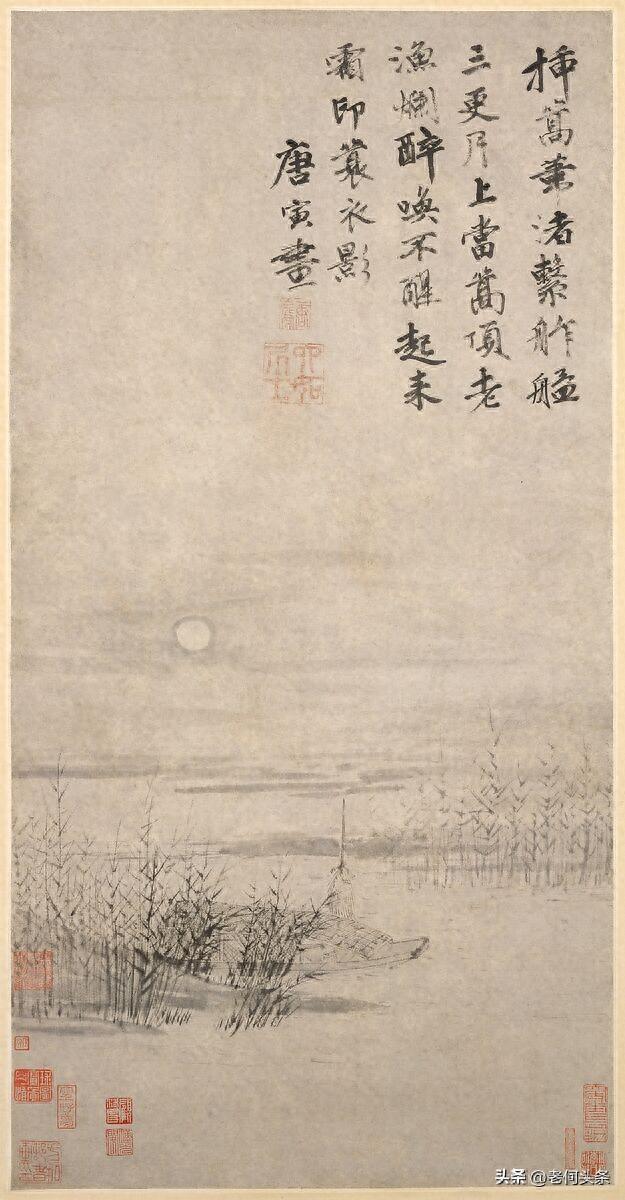 插篙葦渚繫舴艋
三更月上當篙頂老
漁爛醉喚不醒起来
霜印蓑衣影
唐寅畫
六如居士
头条 @老何头条